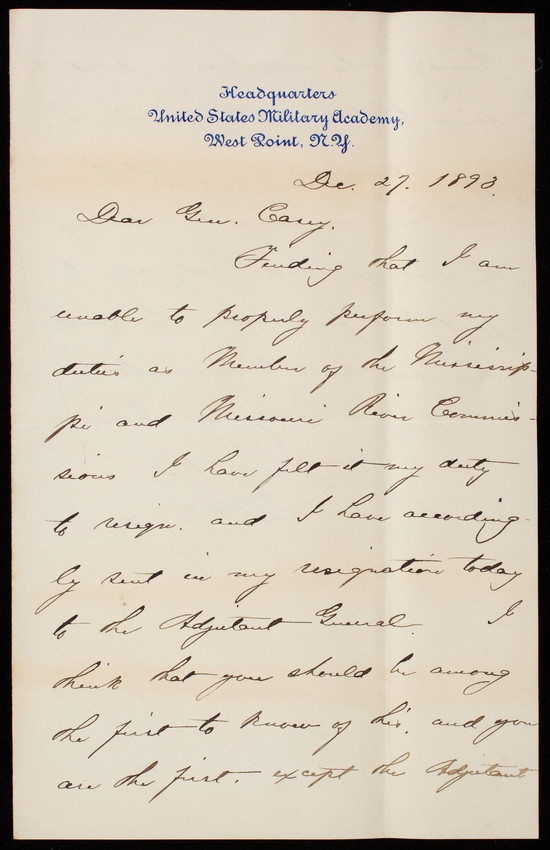 Headquarters
United States Military Academy,
West Point, N.Y.
Dec. 27. 1893.
Dear Gen. Casey,
Finding that I am
unable to properly perform my
duties as Member of the Mississip-
pi and Missouri River Commis-
sions I have felt it my duty
to resign. and I have according-
ly sent in my resignation today
to the Adjutant General. I
think that you should be among
the first to know of this, and you
are the first. except the Adjutant